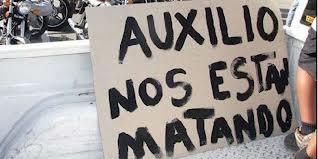 AUXILIO
NOS ESTÁN
MATANDO